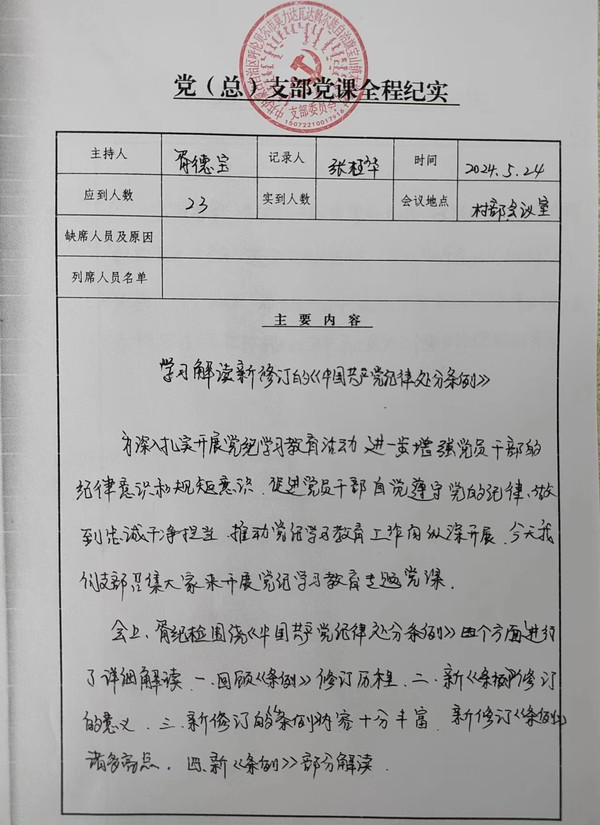 党（总）支部党课全程纪实
支部委员会
主持人 胥德宝 记录人 张桓华 时间 2024.5.24
应到人数 23 实到人数 会议地点 村部会议室
缺席人员及原因
列席人员名单
主要内容
学习解读新修订的《中国共产党纪律处分条例》
为深入扎实开展党纪学习教育活动 进一步增强党员干部的
纪律意识和规矩意识 促进党员干部自觉遵守党的纪律、做
到忠诚干净担当 推动党纪学习教育工作向纵深开展 今天我
们支部召集大家来开展党纪学习教育主题党课.
会上、胥纪检围绕《中国共产党纪律处分条例》四个方面进行
了详细解读 一、回顾《条例》修订历程 二、新《条例》修订
的意义 三、新修订的《条例》内容十分丰富 新修订《条例》
诸多亮点. 四、新《条例》部分解读.